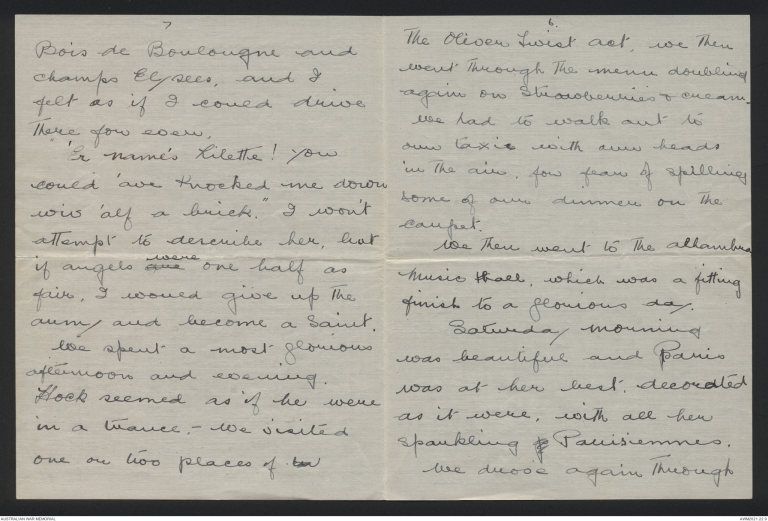 6.
The Oliver Twist act, we then
went through the menu doubling
again on Strawberries & cream.
We had to walk out to
our taxis with our heads
in the air, for fear of spilling
some of our dinner on the
carpet.
We then went to the alhambra
music hall, which was a fitting
finish to a glorious day.
Saturday morning
was beautiful and Paris
was at her best, decorated
as it were, with all her
sparkling Parisiennes.
We drove again through
7
Bois de Boulougne and
champs Elysees, and I
felt as if I could drive
there for ever.
"'Er name's Lilette! you
could 'ave knocked me down
wiv 'alf a brick." I won't
attempt to describe her, but
if angels are were one half as
fair, I would give up the
army and become a Saint.
We spent a most glorious
afternoon and evening.
Hock seemed as if he were
in a trance, - We visited
one or two places of
AUSTRALIAN WAR MEMORIAL
AWM2021.22.9